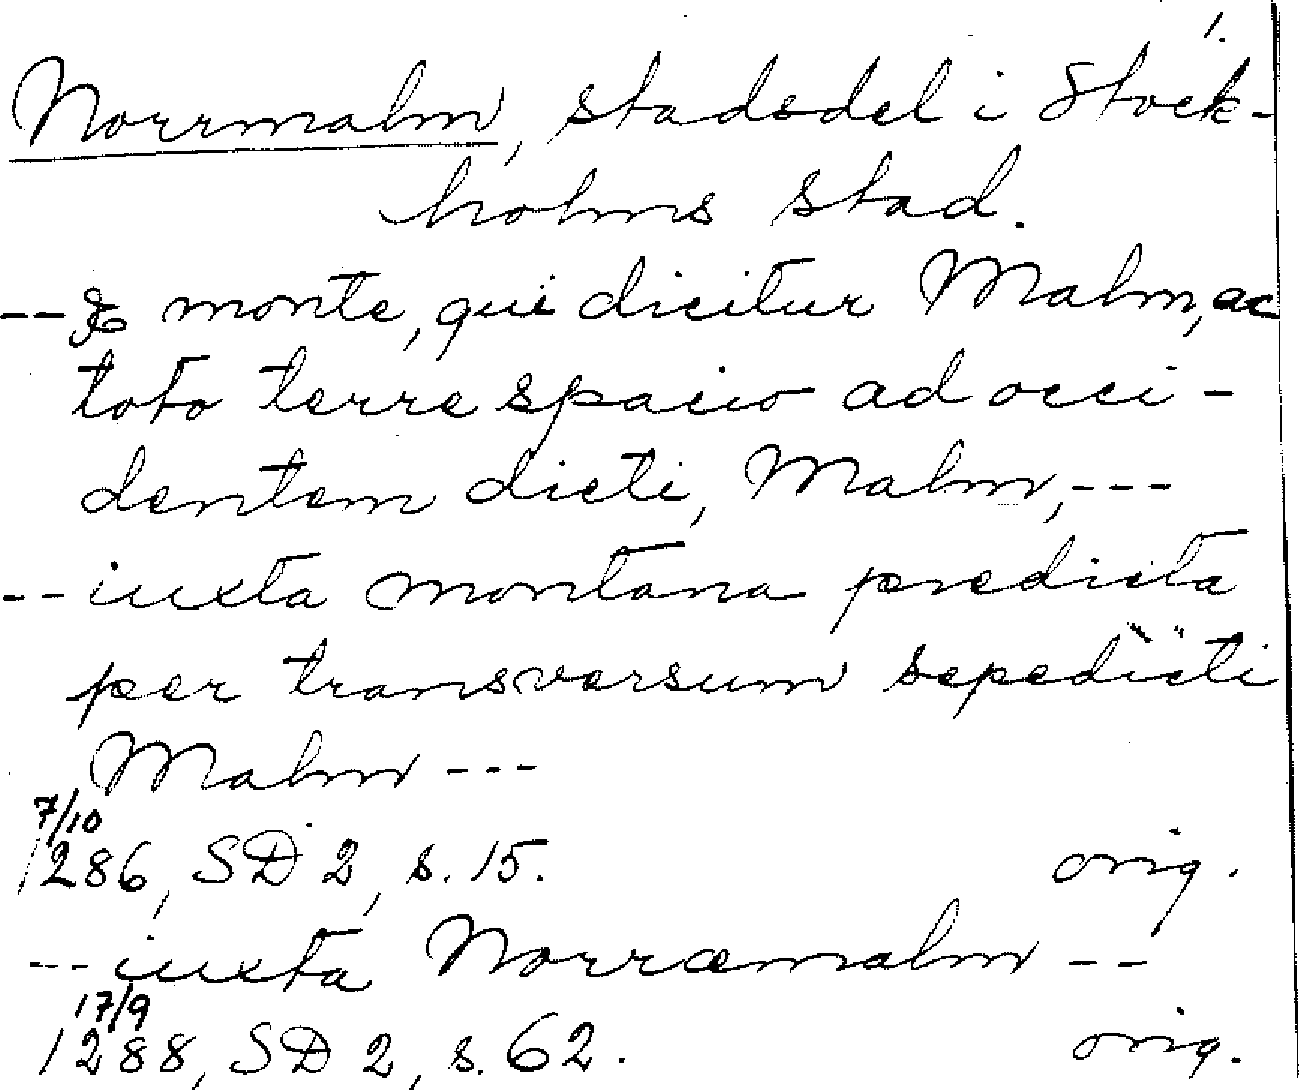 1.
Norrmalm, stadsdel i Stock-
holms stad.
-- & monte, qui dicitur Malm, ac
toto terre spacio ad occi-
dentem dicti, Malm, ---
-- iuxta montana predicta
per transversum sepedicti
Malm ---
7/10
1286, SD 2, s. 15. orig.
--- iuxta Norræmalm --
17/9
1288, SD 2, s. 62. orig.